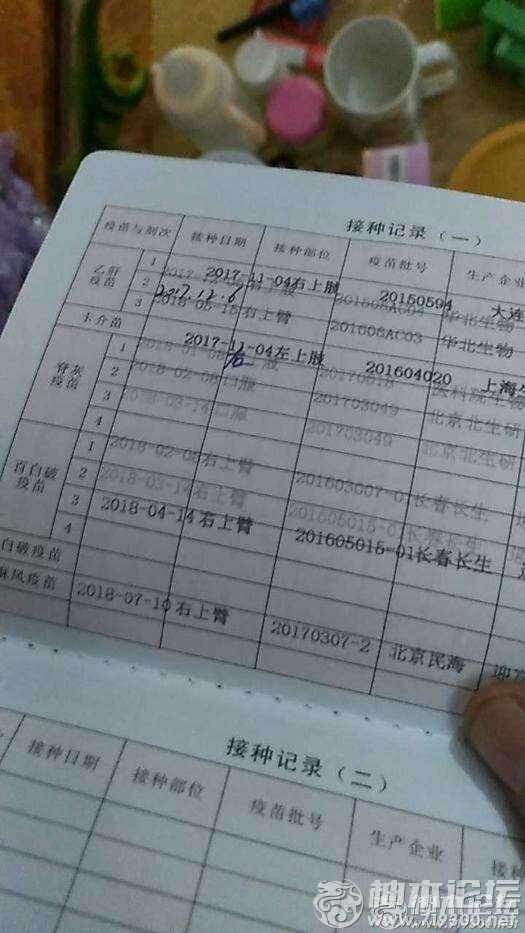 接种记录（一）
疫苗与剂次 接种日期 接种部位 疫苗批号 生产企业
乙肝疫苗 1 2017-11-04 右上肢 20150594 大连
2 2017.12.6 201508AC04 华北生物
3 2018-05-15 右上臂 201608AC03 华北生物
卡介苗 2017-11-04 左上肢 201604020 上海生
脊灰疫苗 1 2018-01-08 右 20170518 医科院生物
2 2018-02-08 口服 201703049 北京北生研
3 2018-03-14 口服 201703049 北京北生研
4
百白破疫苗 1 2018-02-08 右上臂 201603007-01 长春长生
2 2018-03-14 右上臂 201605015-01 长春长生
3 2018-04-14 右上臂 201605015-01 长春长生
4
白破疫苗
麻风疫苗 2018-07-10 右上臂 20170307-2 北京民海
接种记录（二）
接种日期 接种部位 疫苗批号 生产企业 接种